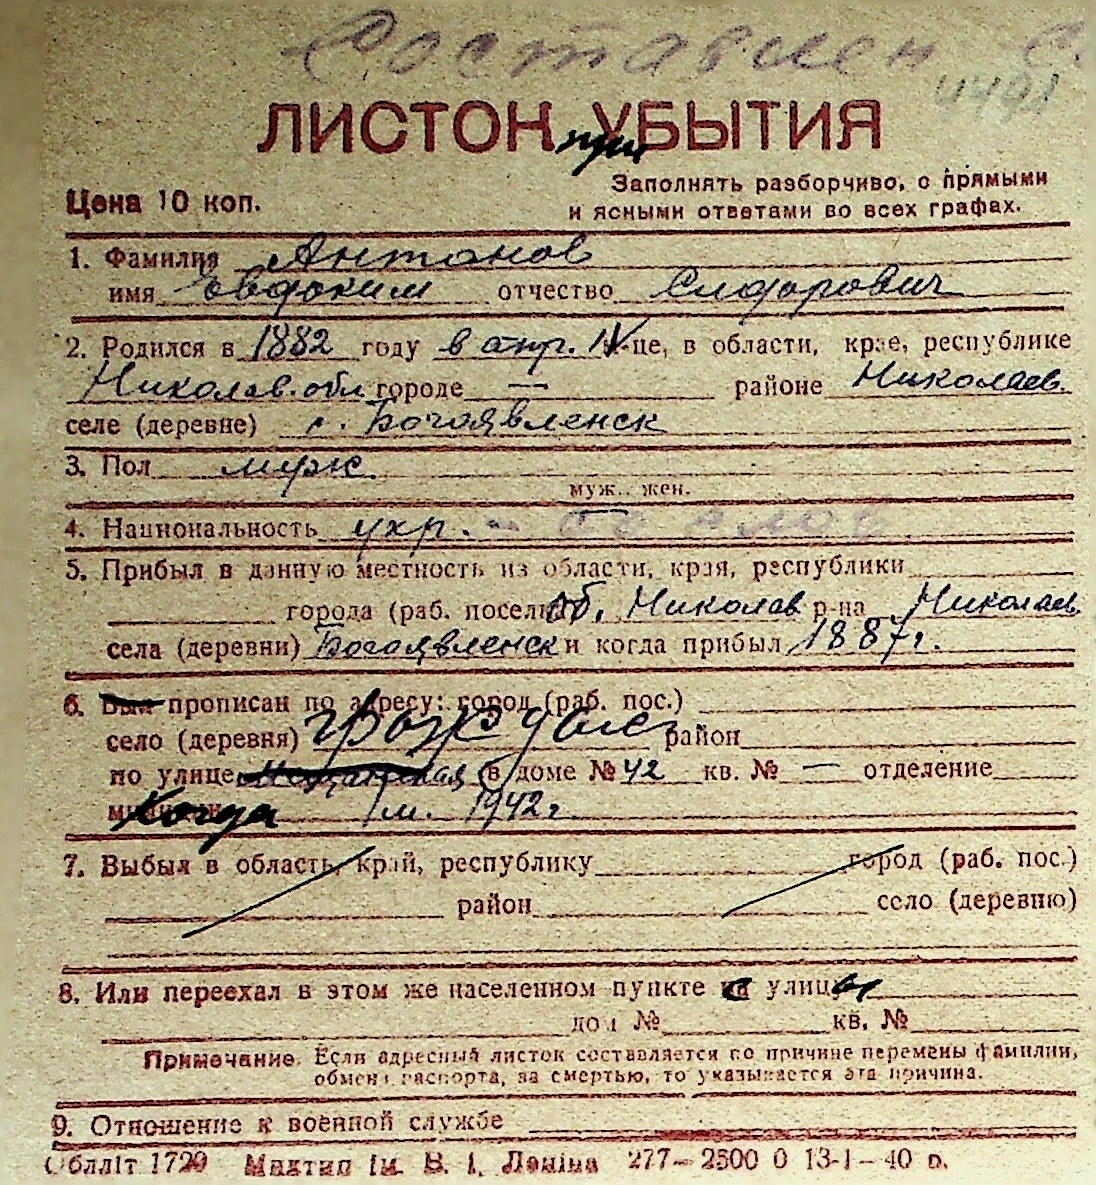 Составлен С.
4491
ЛИСТОК при УБЫТИЯ
Цена 10 коп.
Заполнять разборчиво, с прямыми
и ясными ответами во всех графах.
1. Фамилия Антонов
имя Евдоким отчество Сидорович
2. Родился в 1882 году в апр. IV-це, в области, крае, республике
Николав. обл. городе — районе Николаев.
селе (деревне) с. Богоявленск
3. Пол муж
муж., жен.
4. Национальность укр. -
5. Прибыл в данную местность из области, края, республики
города (раб. поселка) об. Николав р-на Николаев
села (деревни) Богоявленск и когда прибыл 1887г.
6. Был прописан по адресу: город (раб. пос.)
село (деревня) район
по улице Мещанская в доме № 42 кв. № — отделение
Когда 1942г
7. Выбыл в область, край, республику город (раб. пос.)
район село (деревню)
8. Или переехал в этом же населенном пункте с улицы
дом № кв. №
Примечание. Если адресный листок составляется по причине перемены фамилии,
обмена паспорта, за смертью, то указывается эта причина.
9. Отношение к военной службе
Обллiт 1729 Махтип iм. В. I. Ленiна 277—2500 0 13-I—40 р.